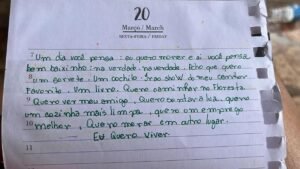 20
Março / March
SEXTA-FEIRA / FRIDAY
7 Um dia você pensa: eu quero morrer e aí você pensa
bem baixinho: na verdade, na verdade. Acho que quero
8 um sorvete. Um cochilo. Ir ao show do meu cantor
favorito. Um livro. Quero caminhar na floresta.
9 Quero ver meu amigo. Quero tentar a luz, quero
um cozinha mais limpa, quero um emprego
10 melhor. Quero morar em outro lugar.
Eu Quero Viver
11